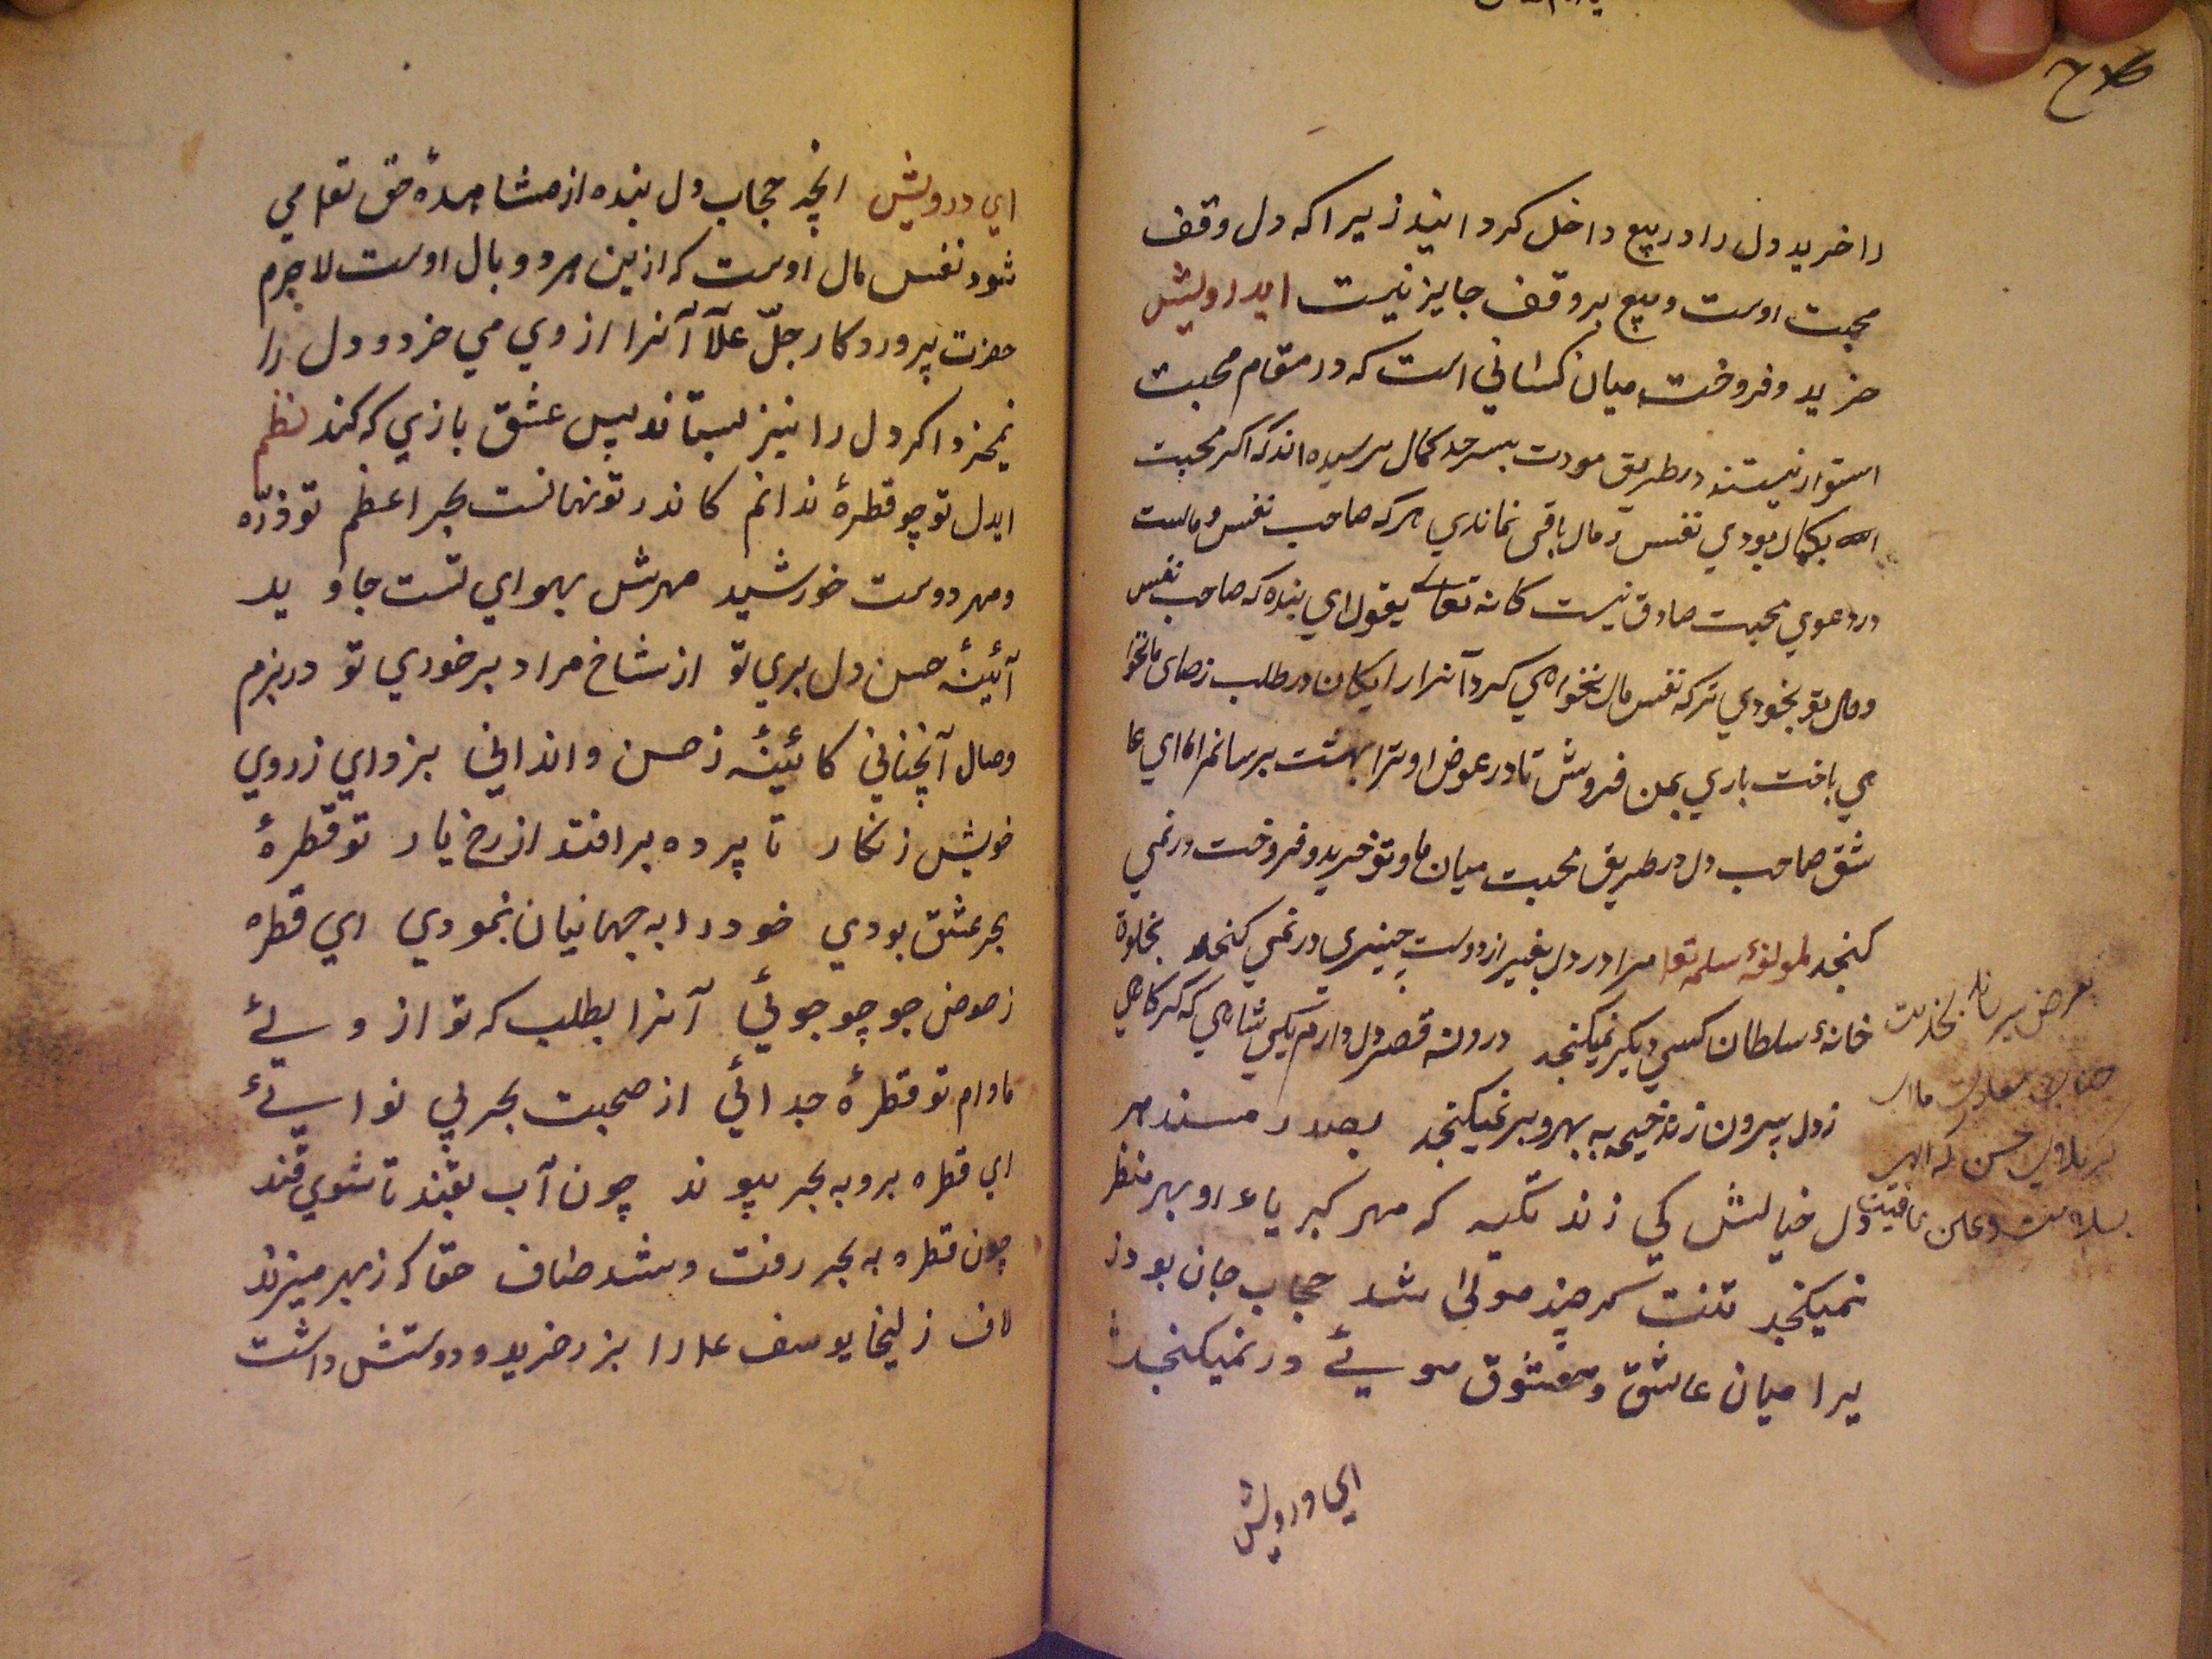 را خرید دل را در بیع داخل کردانید زیرا که دل وقف
محبت اوست و بیع بر وقف جایز نیست ایدرویش
خرید و فروخت میان کسانی است که در مقام محبت
استوار نیستند در طریق مودت بسرحد کمال نرسیده اند که اکر محبت
بکمال بودي نفس و مال باقی نماندي هرکه صاحب نفس و مالست
در دعوي محبت صادق نیست کانه تعالے یقول اي بنده که صاحب نفس
و مال تو بخودي ترک نفس مال نخواهي کرد آنرا رایکان در طلب رضای ما نخوا
هي باخت باري بمن فروش تا در عوض او ترا بهشت برسانم اما اي عا
شق صاحب دل در طریق محبت میان ما و تو خرید و فروخت در نمي
کنجد لمولفهٔ سلمه تعا مرا در دل بغیر از دوست چیزي در نمي کنجد بخلوة
خانهٔ سلطان کسي دیکر نمیکنجد درون قصر دل دارم یکي شاهي که کر کاهي
ز دل بیرون زند خیمه به بحر و بر نمیکنجد بصدر مسند مهر
دل خیالش کي زند تکیه که مهر کبریاء او بهر منظر
نمیکنجد تنت هرچند مولی شد حجاب جان بود ز
یرا میان عاشق و معشوق مویے در نمیکنجد
اي درویش
بعرض میرساند بخدمت
اي درویش انچه حجاب دل بنده از مشاهدهٔ حق تعا می
شود نفس مال اوست که ازین هر دو وبال اوست لاجرم
حضرت پروردکار جلّ علآ آنرا از وي مي خرد و دل را
نمیخرد اکر دل را نیز بستاند پس عشق بازي که کند نظم
ایدل تو چو قطرهٔ ندانم کاندر تو نهانست بحر اعظم تو ذرّه
و مهر دوست خورشید مهرش بهواي تست جاوید
آئینهٔ حسن دل بري تو از شاخ مراد برخوري تو در بزم
وصال آنچناني کائینهٔ ز حسن و اندانی بزداي ز روي
خویش زنکار تا پرده برافتد از رخ یار تو قطرهٔ
بحر عشق بودي خود را به جهانیان نمودي اي قطره
ز حوض جو چو جوئي آنرا بطلب که تو از ویے
مادام تو قطرهٔ جدائي از صحبت بحر بي نوایئے
اي قطره برو به بحر پیوند چون آب بقند تا شوي قند
چون قطره به بحر رفت و شد صاف حقا که ز بهر میزند
لاف زلیخا یوسف علا را بزر خرید و دوستش داشت